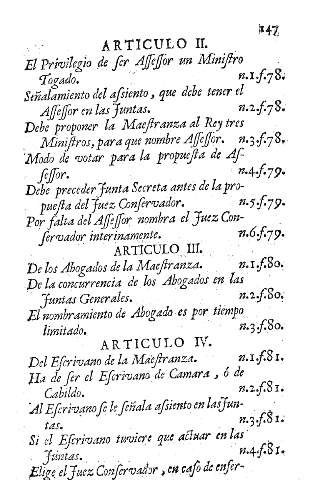 147
ARTICULO II.
El Privilegio de ser Assessor un Ministro
Togado. n.1.f.78.
Señalamiento del assiento, que debe tener el
Assessor en las Juntas. n.2.f.78.
Debe proponer la Maestranza al Rey tres
Ministros, para que nombre Assessor. n.3.f.78.
Modo de votar para la propuesta de As-
sessor. n.4.f.79.
Debe preceder Junta Secreta antes de la pro-
puesta del Juez Conservador. n.5.f.79.
Por falta del Assessor nombra el Juez Con-
servador interinamente. n.6.f.79.
ARTICULO III.
De los Abogados de la Maestranza. n.1.f.80.
De la concurrencia de los Abogados en las
Juntas Generales. n.2.f.80.
El nombramiento de Abogado es por tiempo
limitado. n.3.f.80.
ARTICULO IV.
Del Escrivano de la Maestranza. n.1.f.81.
Ha de ser el Escrivano de Camara, ó de
Cabildo. n.2.f.81.
Al Escrivano se le señala assiento en las Jun-
tas. n.3.f.81.
Si el Escrivano tuviere que actuar en las
Juntas. n.4.f.81.
Elige el Juez Conservador, en caso de enfer-